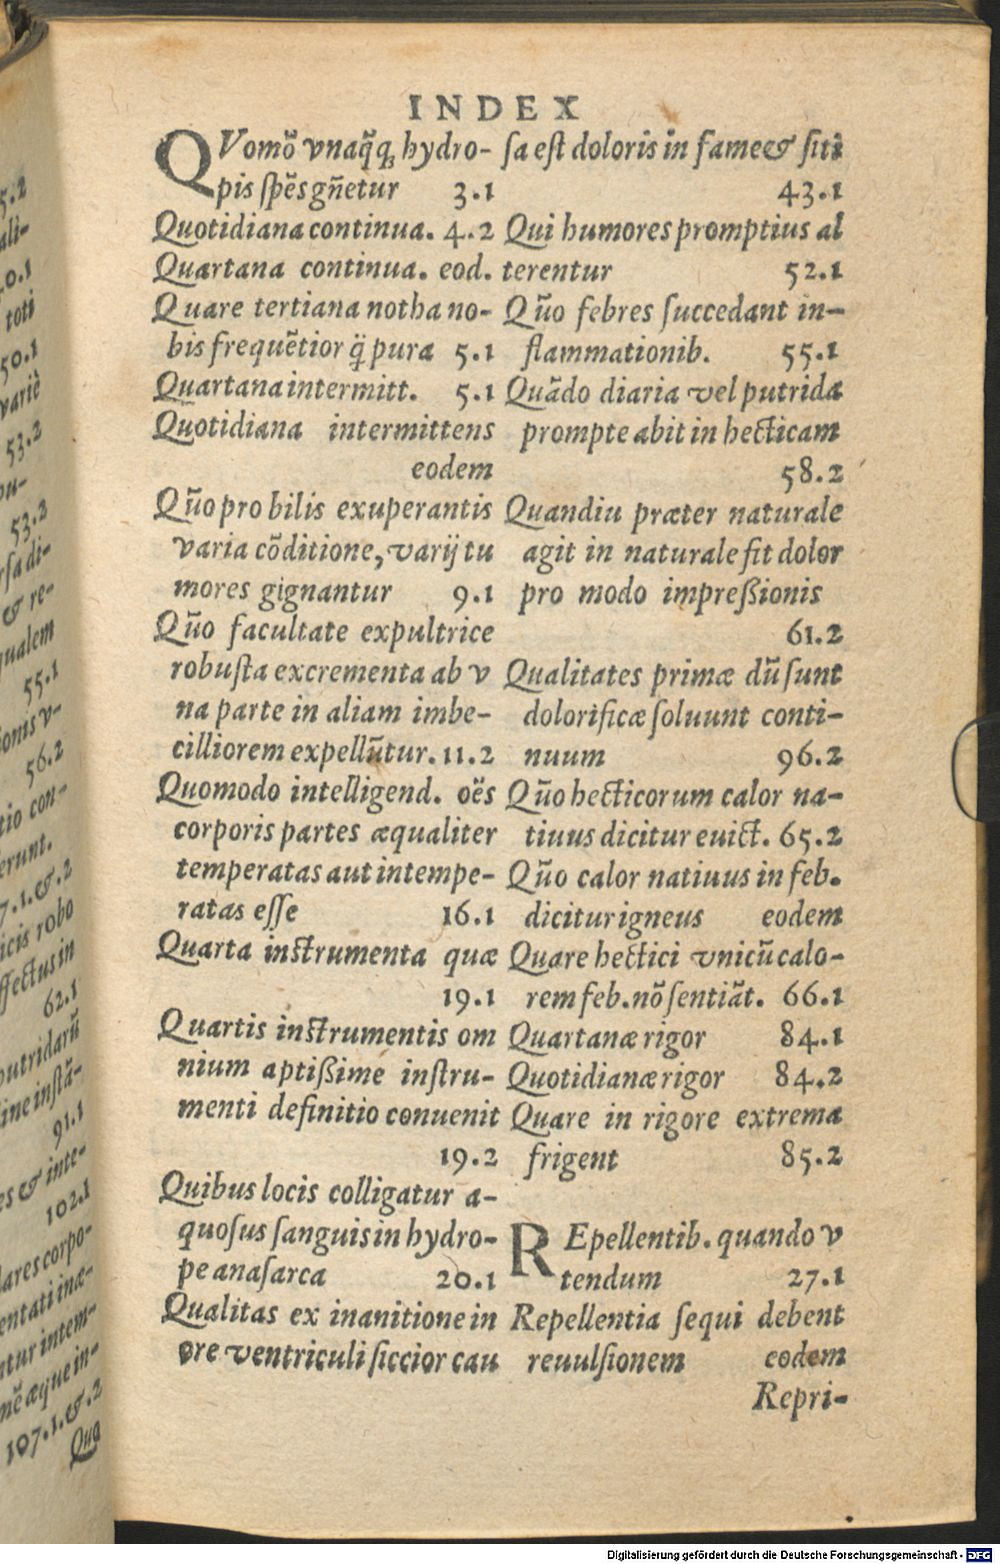 INDEX
QVomõ vnaq̃q; hydro-
pis spẽs gñetur 3.1
Quotidiana continua. 4.2
Quartana continua. eod.
Quare tertiana notha no-
bis frequẽtior q̃ pura 5.1
Quartana intermitt. 5.1
Quotidiana intermittens
eodem
Qũo pro bilis exuperantis
varia cõditione, varij tu
mores gignantur 9.1
Qũo facultate expultrice
robusta excrementa ab v
na parte in aliam imbe-
cilliorem expellũtur. 11.2
Quomodo intelligend. oẽs
corporis partes æqualiter
temperatas aut intempe-
ratas esse 16.1
Quarta instrumenta quæ
19.1
Quartis instrumentis om
nium aptißime instru-
menti definitio conuenit
19.2
Quibus locis colligatur a-
quosus sanguis in hydro-
pe anasarca 20.1
Qualitas ex inanitione in
ore ventriculi siccior cau
sa est doloris in fame & siti
43.1
Qui humores promptius al
terentur 52.1
Qũo febres succedant in-
flammationib. 55.1
Quãdo diaria vel putrida
prompte abit in hecticam
58.2
Quandiu præter naturale
agit in naturale fit dolor
pro modo impreßionis
61.2
Qualitates primæ dũ sunt
dolorificæ soluunt conti-
nuum 96.2
Qũo hecticorum calor na-
tiuus dicitur euict. 65.2
Qũo calor natiuus in feb.
dicitur igneus eodem
Quare hectici vnicũ calo-
rem feb. nõ sentiãt. 66.1
Quartanæ rigor 84.1
Quotidianæ rigor 84.2
Quare in rigore extrema
frigent 85.2
REpellentib. quando v
tendum 27.1
Repellentia sequi debent
reuulsionem eodem
Repri-
5.2
ali-
0.1
toti
50.1
variè
53.2
53.2
& re-
qualem
55.1
56.2
tio con-
erunt.
7.1.&.2
icis robo
ffectus in
62.1
putridarũ
ine instã-
91.1
es & inte-
102.1
lares corpo-
entati inæ-
ntur intem-
mẽ æque in-
107.1.&.2
Qua
Digitalisierung gefördert durch die Deutsche Forschungsgemeinschaft - DFG